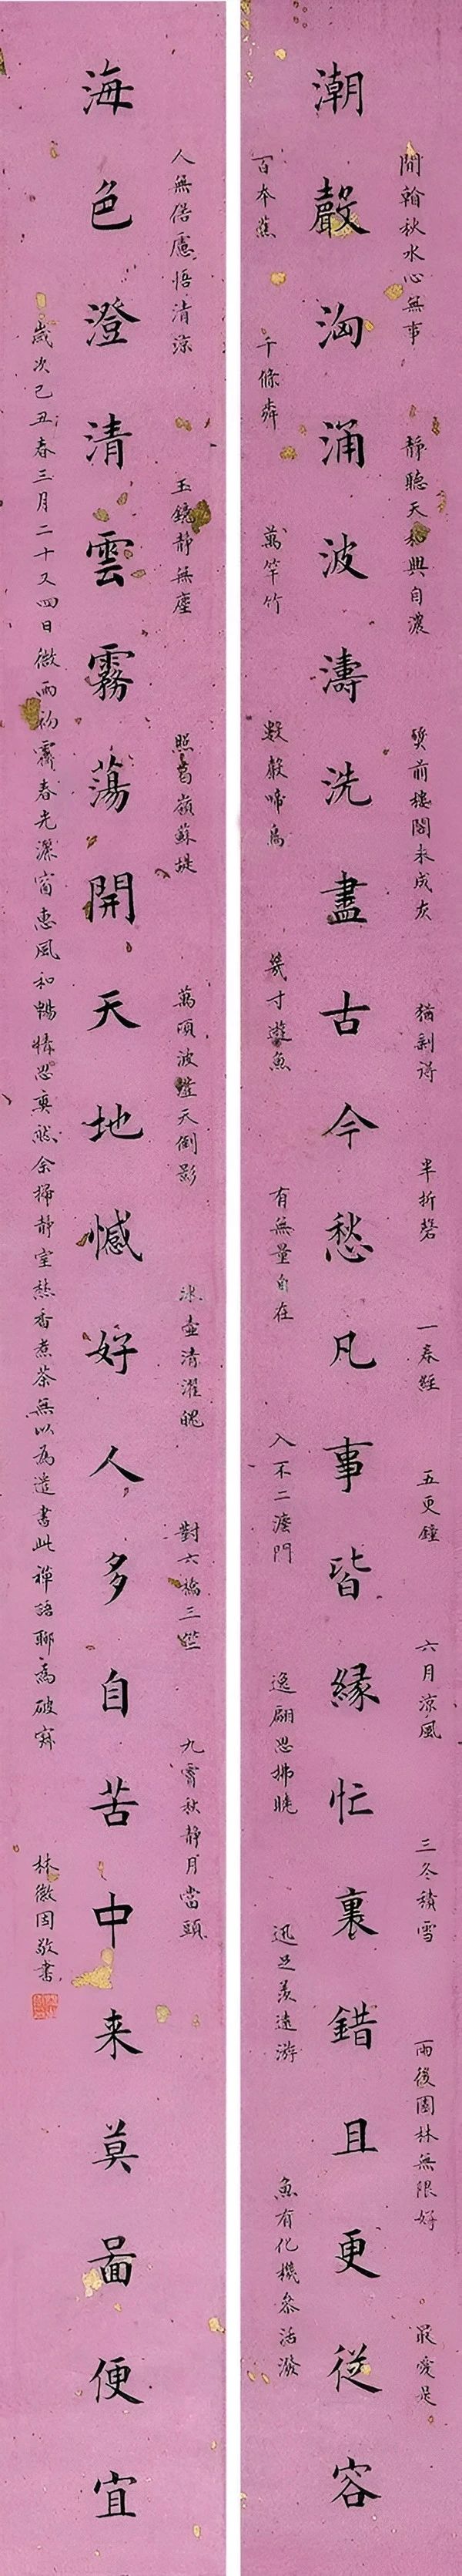 閒翰秋水心無事　靜聽天和興自濃　劫前樓閣未成灰　猶剩得　半折磬　一春經　五更鐘　六月涼風　三冬積雪　雨後園林無限好　最愛是
潮聲洶涌波濤洗盡古今愁凡事皆緣忙裏錯且更從容
百本蕉　千條　萬竿竹　數聲啼鳥　幾寸遊魚　有無量自在　入不二法門　逸翮思拂曉　迅足羨遠游　魚有化機參活潑
人無俗慮悟清涼　玉鏡靜無塵　照葛嶺蘇堤　萬頃波澄天倒影　冰壺清濯魄　對六橋三竺　九霄秋靜月當頭
海色澄清雲霧蕩開天地憾好人多自苦中来莫圖便宜
歲次己丑春三月二十又四日微雨初霽春光潔窗惠風和暢情思奕然余掃靜室爇香煮茶無以為遣書此禪語聊為破寂　林徽因敬書